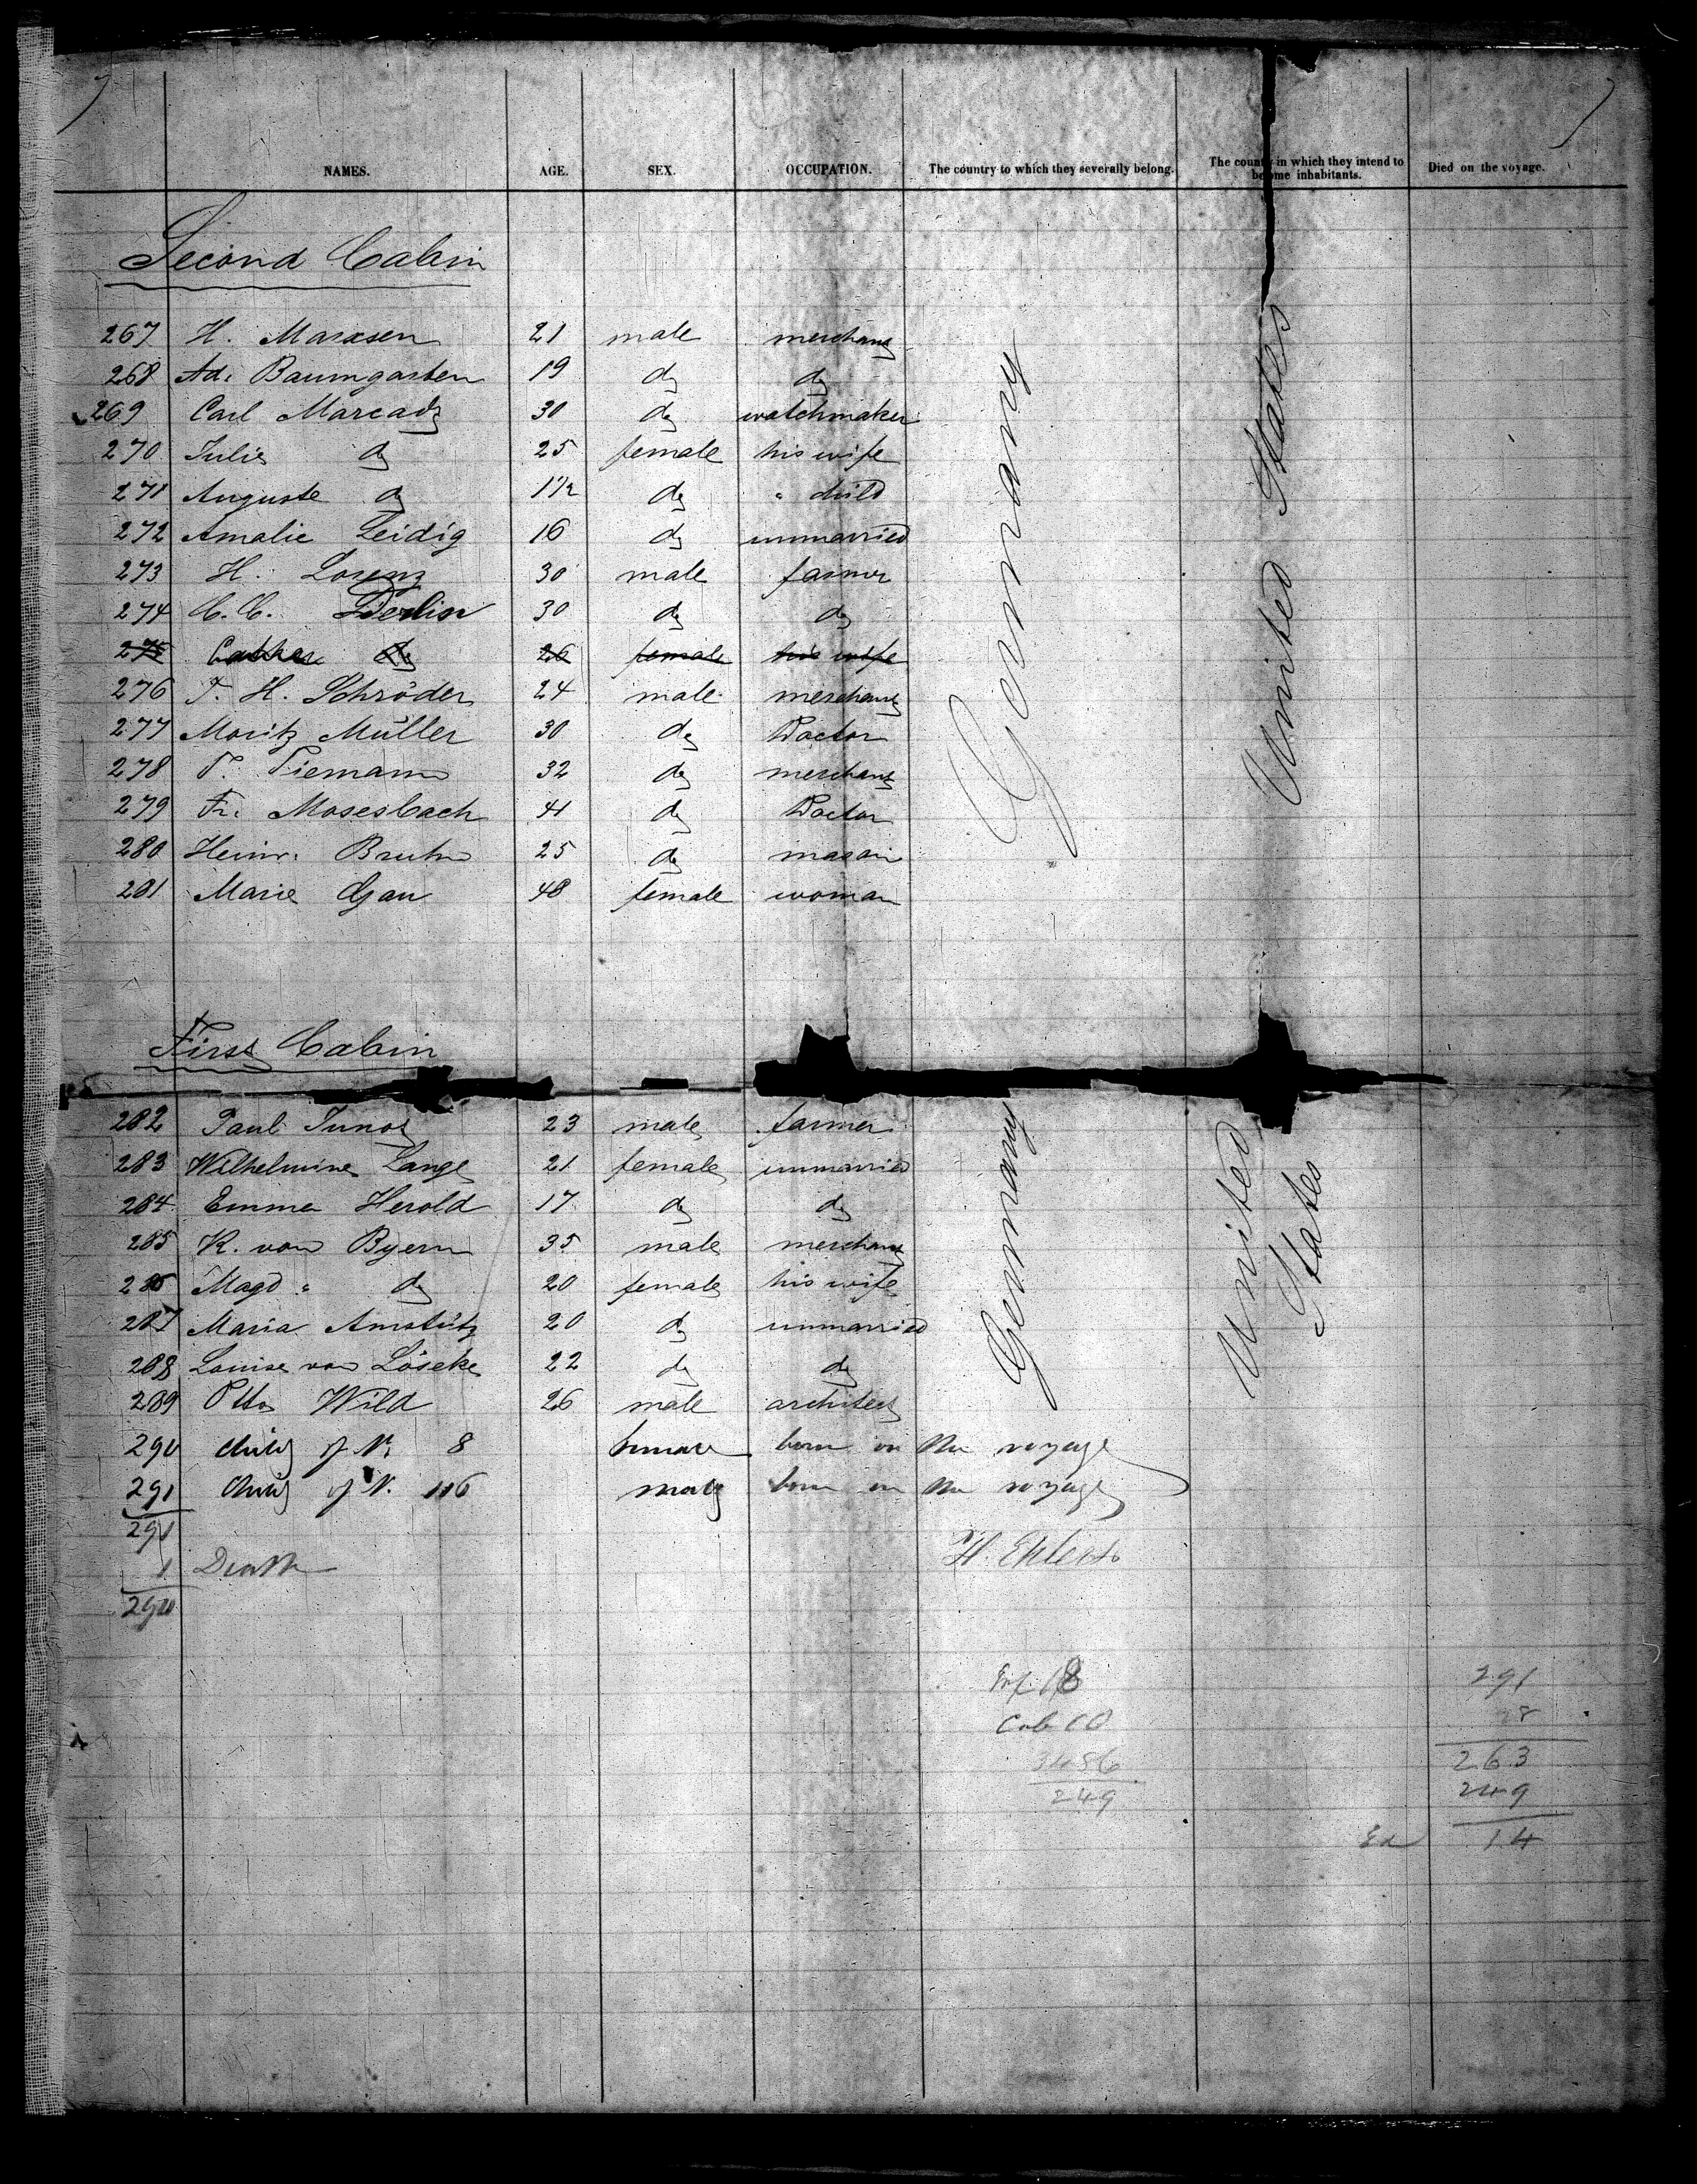 NAMES. AGE. SEX. OCCUPATION. The country to which they severally belong. The country in which they intend to become inhabitants. Died on the voyage.
Second Cabin
267 H. Marxsen 21 male merchant
268 Ad. Baumgarten 19 do do
269 Carl Marcady 30 do watchmaker
270 Julie do 25 female his wife
271 Auguste do 1 1/2 do " child
272 Amalie Leidig 16 do unmarried
273 H. Lorenz 30 male farmer
274 C. C. 30 do do
275 do 26 female his wife
276 T. H. Schröder 24 male merchant
277 Moritz Müller 30 do Doctor
278 T. Tiemann 32 do merchant
279 Fr. Mosesbach 41 do Doctor
280 Heinr. Bruhn 25 do mason
281 Marie Gau 48 female woman
Germany
United States
First Cabin
282 Paul 23 male farmer
283 Wilhelmine Lange 21 female unmarried
284 Emma Herold 17 do do
285 K. von Byern 35 male merchant
286 Magd " do 20 female his wife
287 Maria Amstütz 20 do unmarried
288 Louise von Löseke 22 do do
289 Otto Wild 26 male architect
Germany
United States
290 child of N. 8 female born on the voyage
291 child of N. 116 male born on the voyage
291
1 Death
290
H. Ehlers
8
Cab
249
291
28
263
249
14